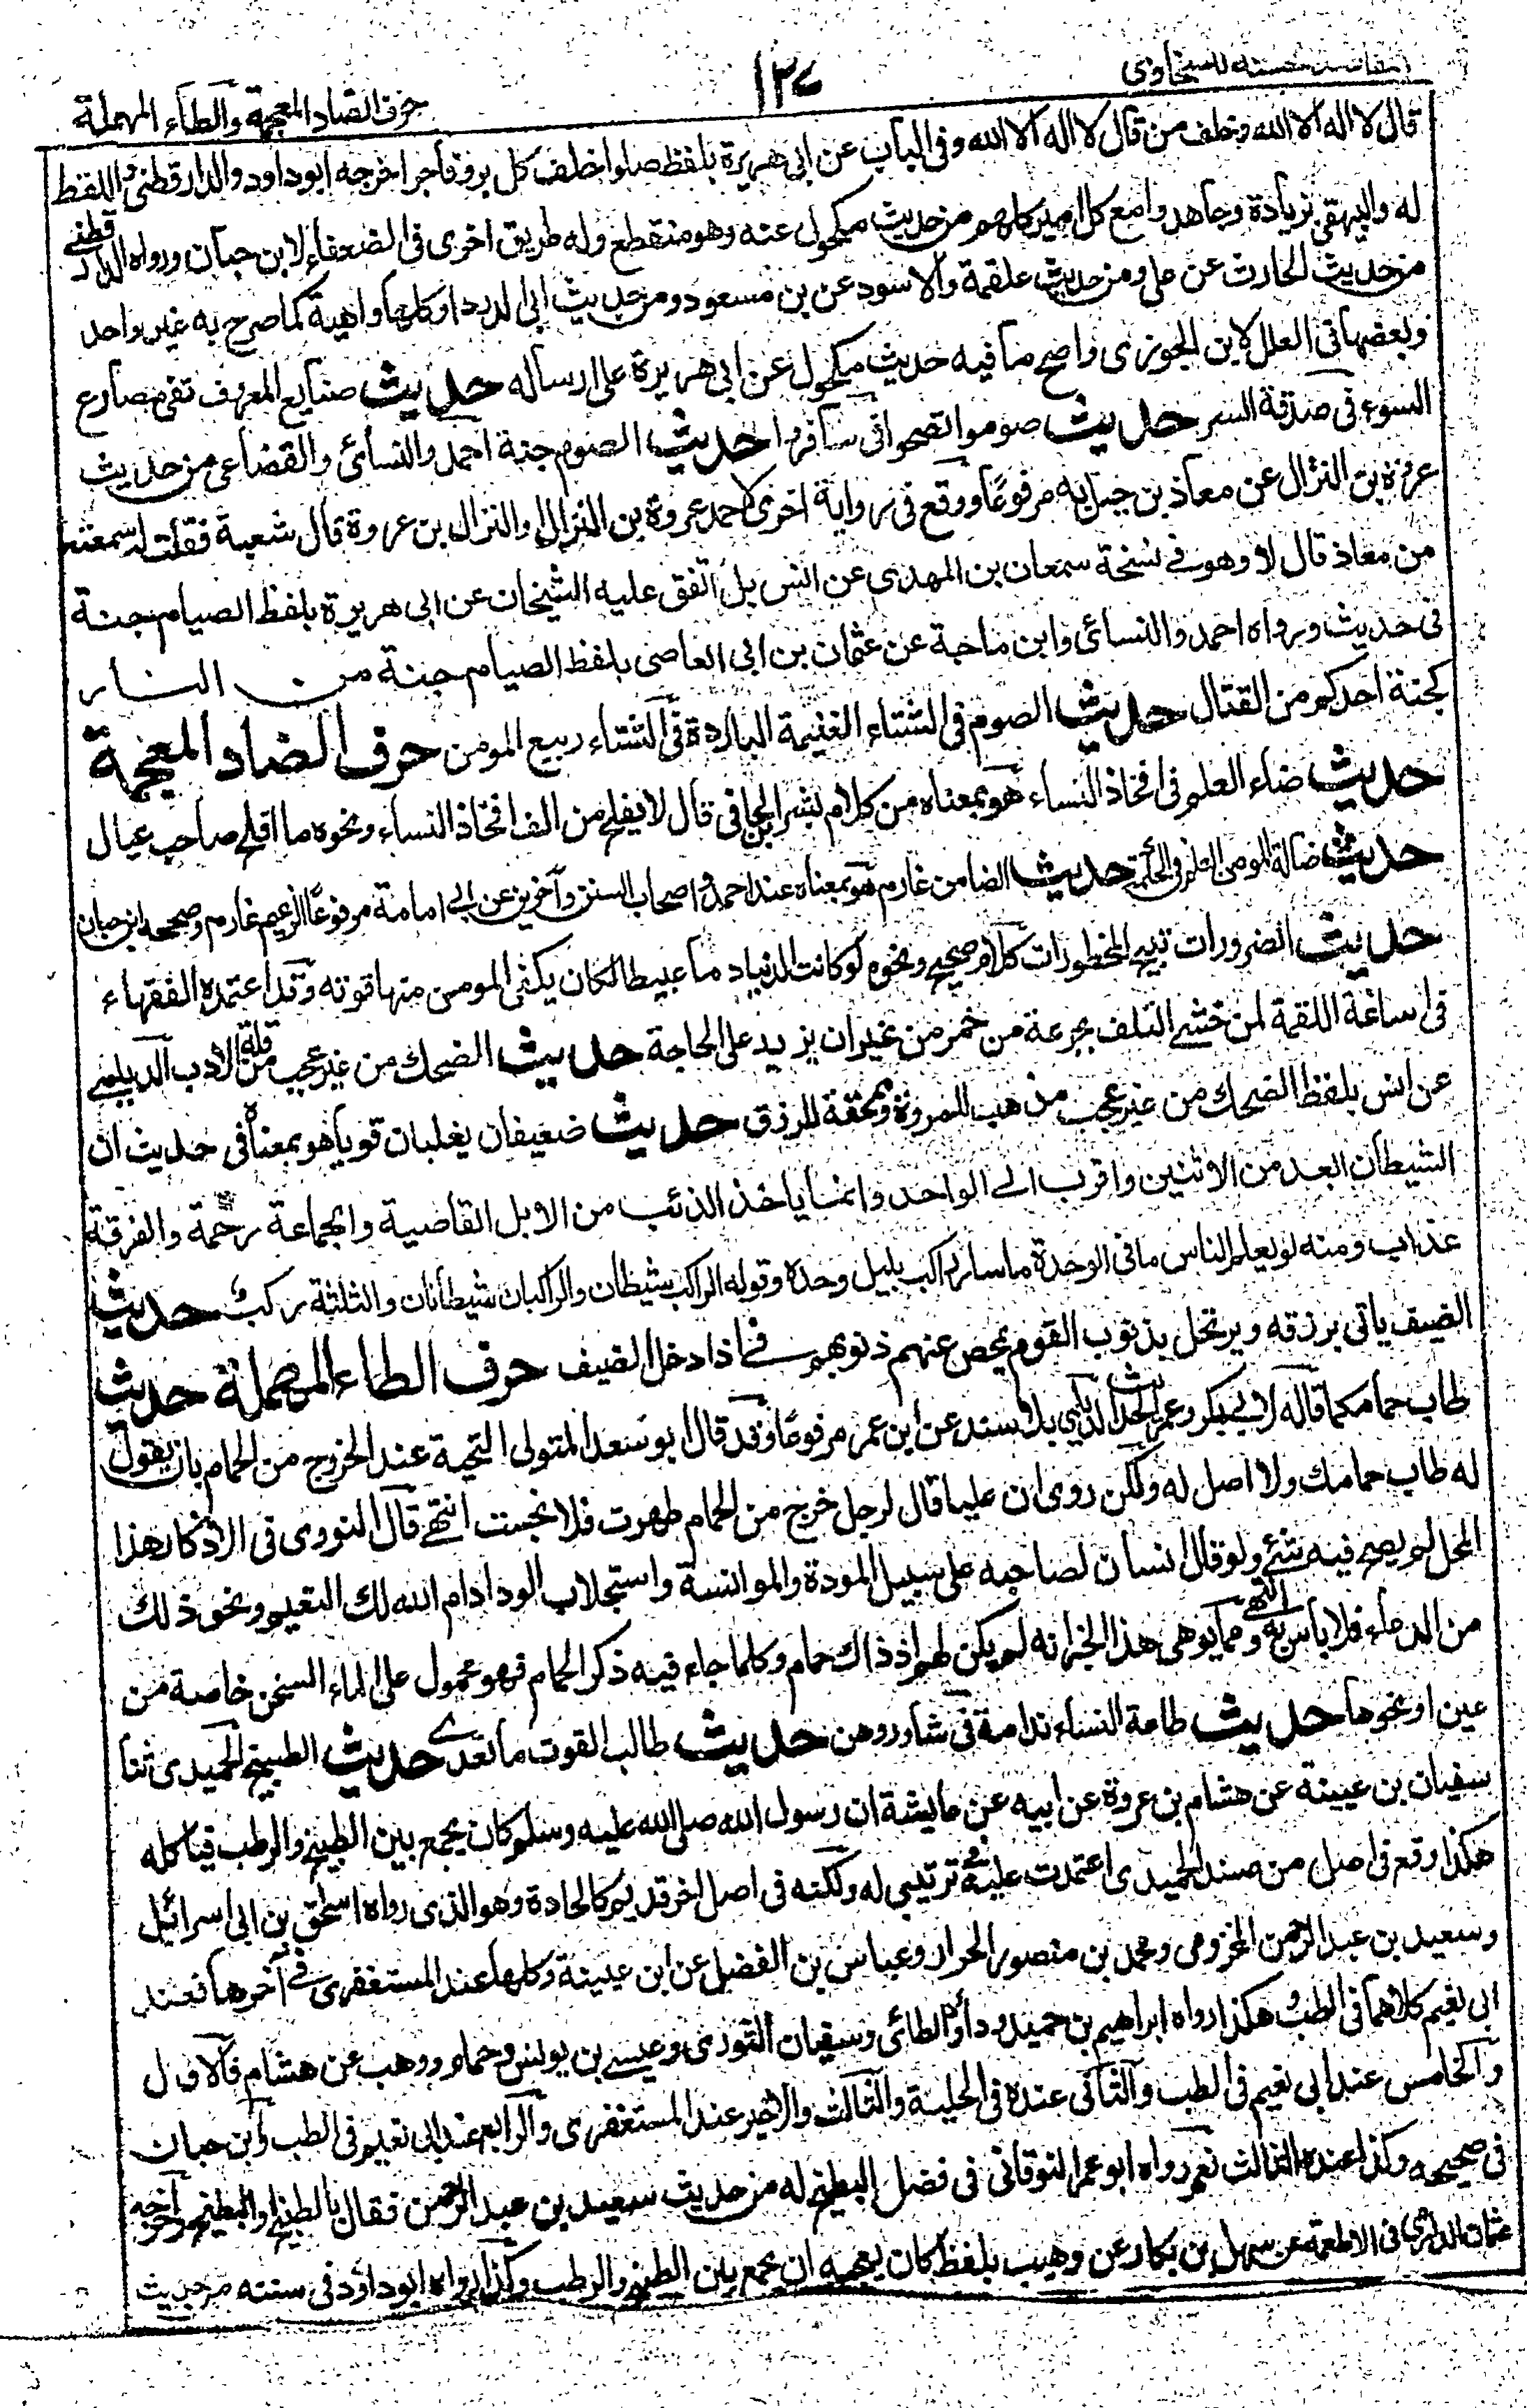 المقاصد الحسنة للسخاوى
١٣٤
حرف الضاد المعجمة والطاء المهملة
قال لا اله الا الله وخلف من قال لا اله الا الله وفى الباب عن ابى هريرة بلفظ صلوا خلف كل بر وفاجر اخرجه ابو داود والدارقطنى واللفظ
له والبيهقى بزيادة وجاهدوا مع كل امير كلهم من حديث مكحول عنه وهو منقطع وله طريق اخرى فى الضعفاء لابن حبان ورواه الدارقطنے
من حديث الحارث عن على ومن حديث علقمة والاسود عن بن مسعود ومن حديث ابى الدرداء وكلها واهية كما صرح به غير واحد
وبعضها فى العلل لابن الجوزى واصح ما فيه حديث مكحول عن ابى هريرة على ارساله حديث صنايع المعروف تقى مصارع
السوء فى صدقة السر حديث صوموا تصحوا فى سافروا حديث الصوم جنة احمد والنسائى والقضاعى من حديث
عروة بن النزال عن معاذ بن جبل به مرفوعا ووقع فى رواية اخرى لاحمد عروة بن النزال او النزال بن عروة قال شعبة فقلت له سمعته
من معاذ قال لا وهو فے نسخة سمعان بن المهدى عن انس بل اتفق عليه الشيخان عن ابى هريرة بلفظ الصيام جنة
فى حديث ورواه احمد والنسائى وابن ماجة عن عثمان بن ابى العاصى بلفظ الصيام جنة من النار
كجنة احدكم من القتال حديث الصوم فى الشتاء الغنيمة الباردة فى الشتاء ربيع المومن حرف الضاد المعجمة
حديث ضاء العلم فى افخاذ النساء هو بمعناه من كلام بشر الحافى قال لا يفلح من الف افخاذ النساء ونحوه ما افلح صاحب عيال
حديث ضالة المومن العلم فى الحكمة حديث الضامن غارم هو بمعناه عند احمد واصحاب السنن وآخرين عن ابى امامة مرفوعا الزعيم غارم وصححه ابن حبان
حديث الضرورات تبيح المحظورات كلام صحيح ونحوه لو كانت الدنيا دما عبيطا لكان يكفى المومن منها قوته وقد اعتمده الفقهاء
فى اساغة اللقمة لمن خشے التلف بجرعة من خمر من غير ان يزيد على الحاجة حديث الضحك من غير عجب من قلة الادب الديلمے
عن انس بلفظ الضحك من غير عجب مذهب للمروة وممحقة للرزق حديث ضعيفان يغلبان قويا هو بمعناه فى حديث ان
الشيطان ابعد من الاثنين واقرب الى الواحد وانما ياخذ الذئب من الابل القاصية والجماعة رحمة والفرقة
عذاب ومنه لو يعلم الناس ما فى الوحدة ما سار راكب بليل وحده وقوله الراكب شيطان والراكبان شيطانان والثلثة ركب حديث
الضيف ياتى برزقه ويرتحل بذنوب القوم يمحص عنهم ذنوبهم فے اذا دخل الضيف حرف الطاء المهملة حديث
طاب حمامكما قاله لابى بكر وعمر الحديث الديلمى بلا سند عن ابن عمر مرفوعا وقد قال ابو سعد المتولى التحية عند الخروج من الحمام بان يقول
له طاب حمامك ولا اصل له ولكن روى ان عليا قال لرجل خرج من الحمام طهرت فلا نجست انتهے قال النووى فى الاذكار هذا
المحل لم يصح فيه شئ ولو قال انسان لصاحبه على سبيل المودة والموانسة واستجلاب الود ادام الله لك النعيم ونحو ذلك
من الدعاء فلا باس به انتهے ومما يوهى هذا الخبر انه لم يكن لهم اذ ذاك حمام وكلما جاء فيه ذكر الحمام فهو محمول على الماء السخن خاصة من
عين او نحوها حديث طاعة النساء ندامة فى شاوروهن حديث طالب القوت ما تعدے حديث الطبيخ الحميدى ثنا
سفيان بن عيينة عن هشام بن عروة عن ابيه عن عايشة ان رسول الله صلى الله عليه وسلم كان يجمع بين الطبيخ والرطب فياكله
هكذا وقع فى اصل من مسند الحميدى اعتمدت عليه فى ترتيبى له ولكنه فى اصل اخر قديم كالجادة وهو الذى رواه اسحق بن ابى اسرائيل
وسعيد بن عبد الرحمن المخزومى ومحمد بن منصور الحراز وعباس بن الفضل عن ابن عيينة وكلها عند المستغفرى فے آخرها فعند
ابى نعيم كلاهما فى الطب وهكذا رواه ابراهيم بن حميد وداود الطائى وسفيان الثورى وعيسے بن يونس وحماد ووهب عن هشام فالاول
والخامس عند ابى نعيم فى الطب والثانى عنده فى الحلية والثالث والاخير عند المستغفرى والرابع عند ابى نعيم فى الطب وابن حبان
فى صحيحه وكذا عنده الثالث نعم رواه ابو عمر النوقانى فى فضل البطيخ له من حديث سعيد بن عبد الرحمن فقال بالطبيخ او البطيخ واخرجه
عثمان الدارمى فى الاطعمة عن سهل بن بكار عن وهيب بلفظ كان يعجبه ان يجمع بين الطبيخ والرطب وكذا رواه ابو داود فى سننه من حديث